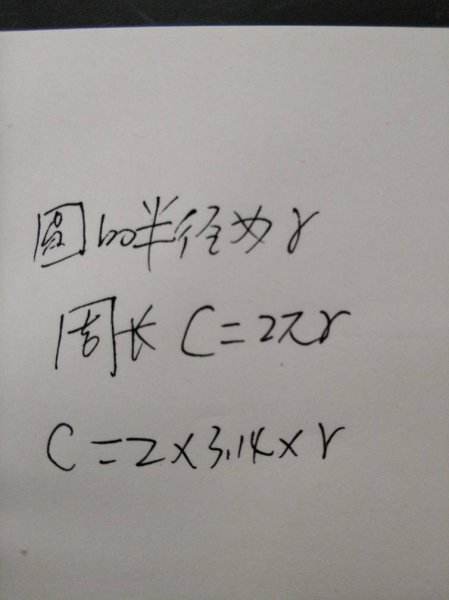 圆的半径为r
周长 C=2πr
C=2×3.14×r